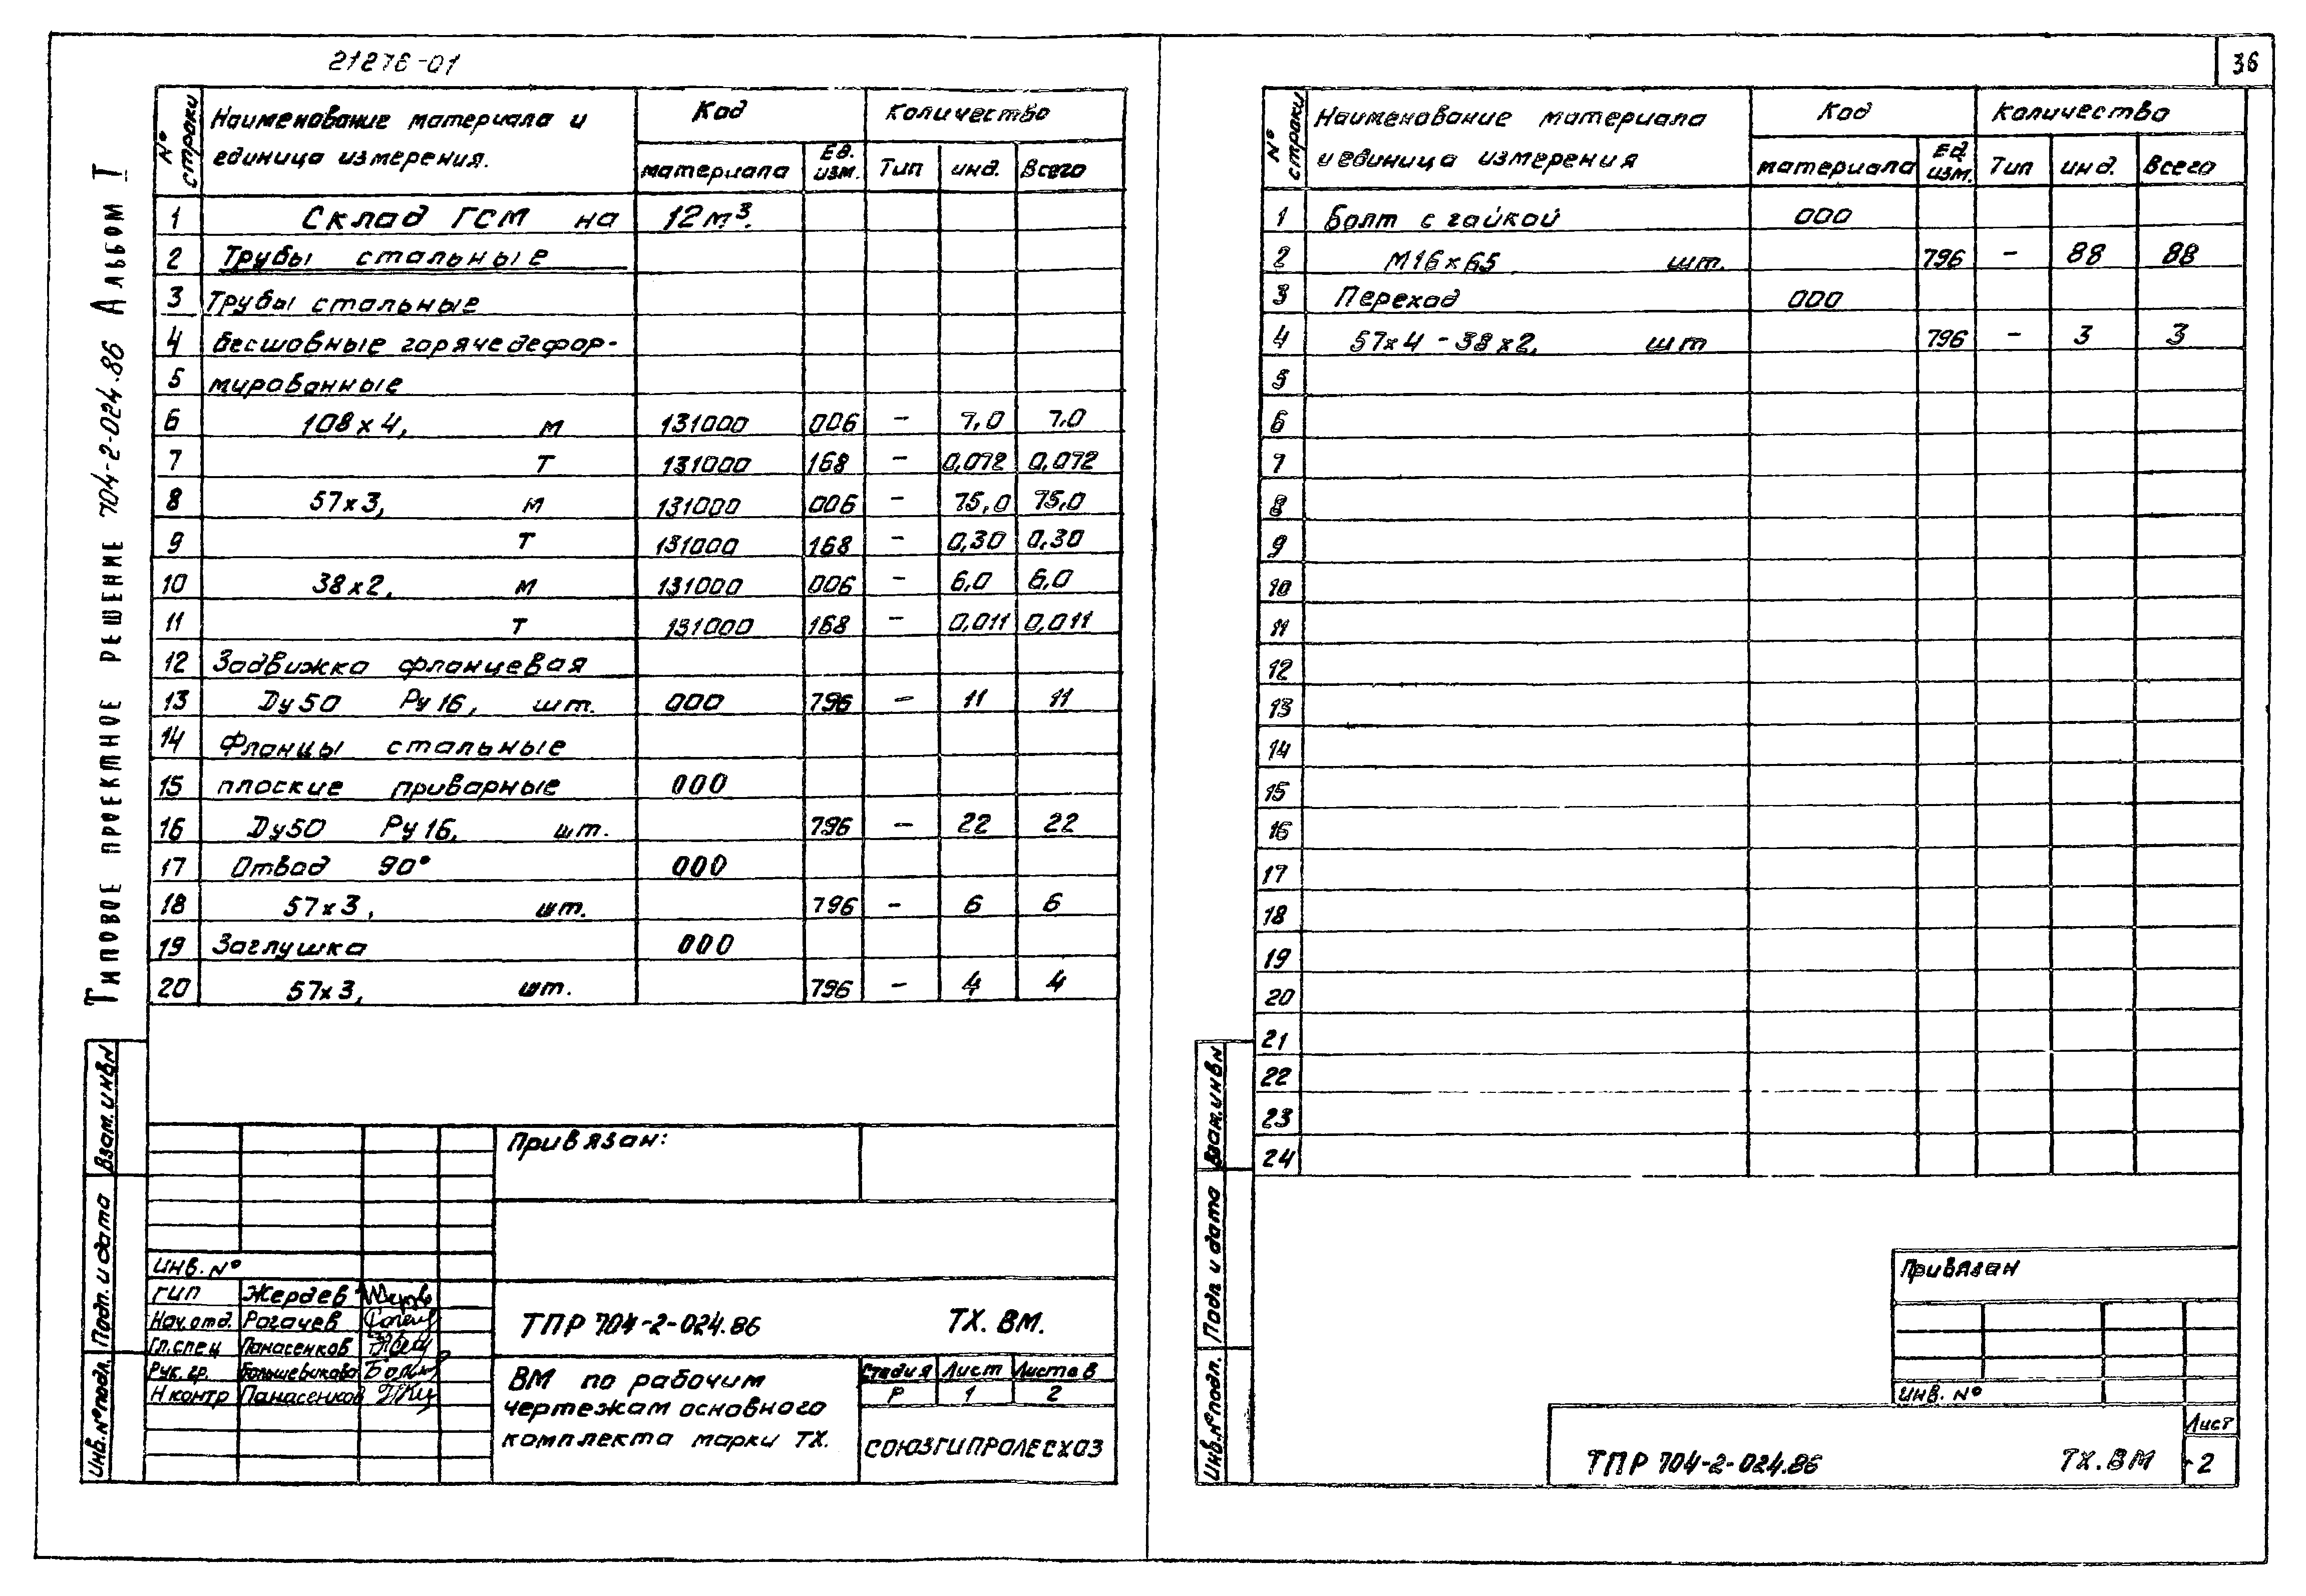 21276-01
36
Типовое проектное решение 704-2-024.86 Альбом I
№ строки | Наименование материала и единица измерения. | Код | Количество
материала | Ед. изм. | Тип | инд. | Всего
1 Склад ГСМ на 12м³.
2 Трубы стальные
3 Трубы стальные
4 бесшовные горячедефор-
5 мированные
6 108х4, м 131000 006 – 7,0 7,0
7 т 131000 168 – 0,072 0,072
8 57х3, м 131000 006 – 75,0 75,0
9 т 131000 168 – 0,30 0,30
10 38х2, м 131000 006 – 6,0 6,0
11 т 131000 168 – 0,011 0,011
12 Задвижка фланцевая
13 Ду50 Ру16, шт. 000 796 – 11 11
14 Фланцы стальные
15 плоские приварные 000
16 Ду50 Ру16, шт. 796 – 22 22
17 Отвод 90° 000
18 57х3, шт. 796 – 6 6
19 Заглушка 000
20 57х3, шт. 796 – 4 4
Взам. инв.№
Подп. и дата
Инв.№ подл.
Привязан:
инв. №
ГИП Жердев
Нач. отд. Рогачев
Гл. спец Панасенков
Рук. гр. Большевикова
Н контр Панасенков
ТПР 704-2-024.86 ТХ. ВМ.
ВМ по рабочим
чертежам основного
комплекта марки ТХ.
Стадия Лист Листов
Р 1 2
СОЮЗГИПРОЛЕСХОЗ
№ строки | Наименование материала и единица измерения | Код | Количество
материала | Ед. изм. | Тип | инд. | Всего
1 Болт с гайкой 000
2 М16х65 шт. 796 – 88 88
3 Переход 000
4 57х4 - 38х2, шт 796 – 3 3
5
6
7
8
9
10
11
12
13
14
15
16
17
18
19
20
21
22
23
24
Взам. инв.№
Подп и дата
Инв.№ подл.
Привязан
инв. №
ТПР 704-2-024.86 ТХ. ВМ
Лист
2